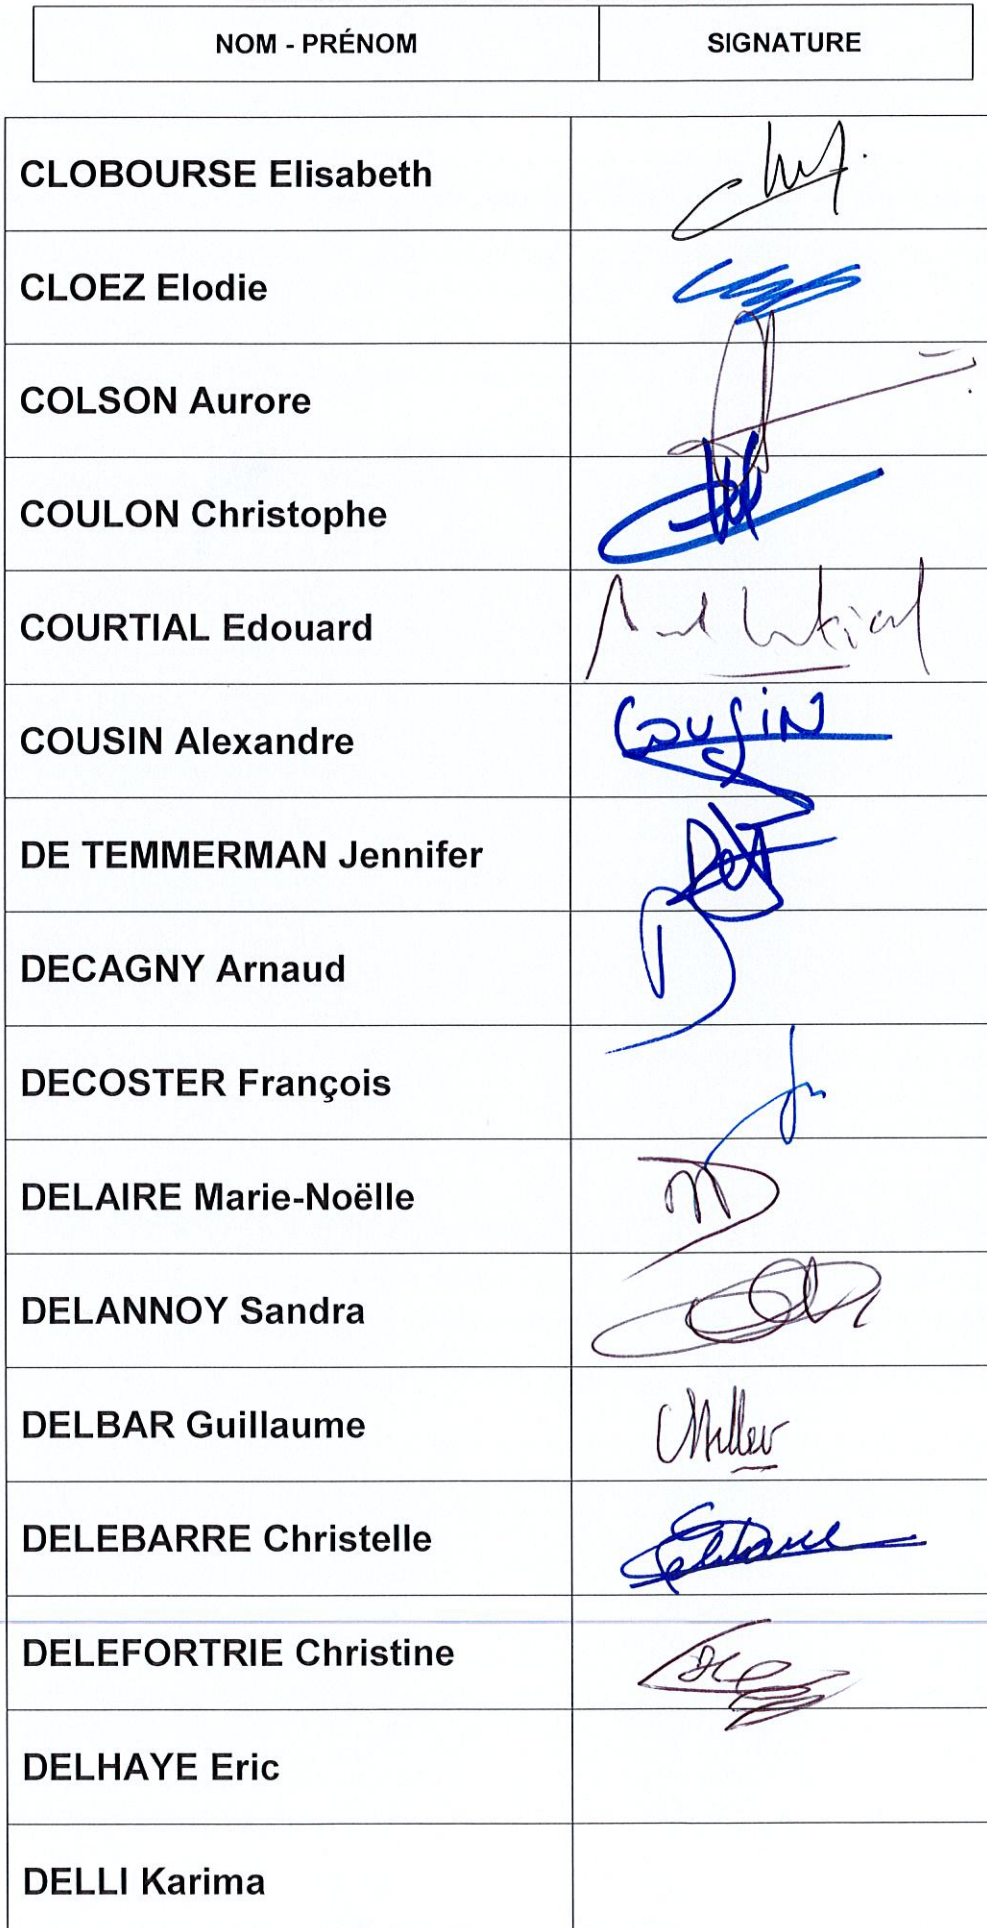 NOM - PRÉNOM SIGNATURE
CLOBOURSE Elisabeth
CLOEZ Elodie
COLSON Aurore
COULON Christophe
COURTIAL Edouard
COUSIN Alexandre COUSIN
DE TEMMERMAN Jennifer
DECAGNY Arnaud
DECOSTER François
DELAIRE Marie-Noëlle
DELANNOY Sandra
DELBAR Guillaume
DELEBARRE Christelle
DELEFORTRIE Christine
DELHAYE Eric
DELLI Karima